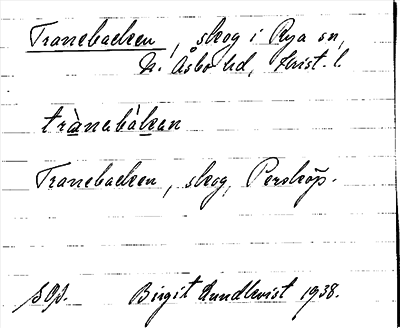 Tranebacken, skog i Rya sn,
N. Åsbo hd, Krist. l.
trànebàken
Tranebacken, skog, Perstorp.
Birgit Lundkvist 1938.